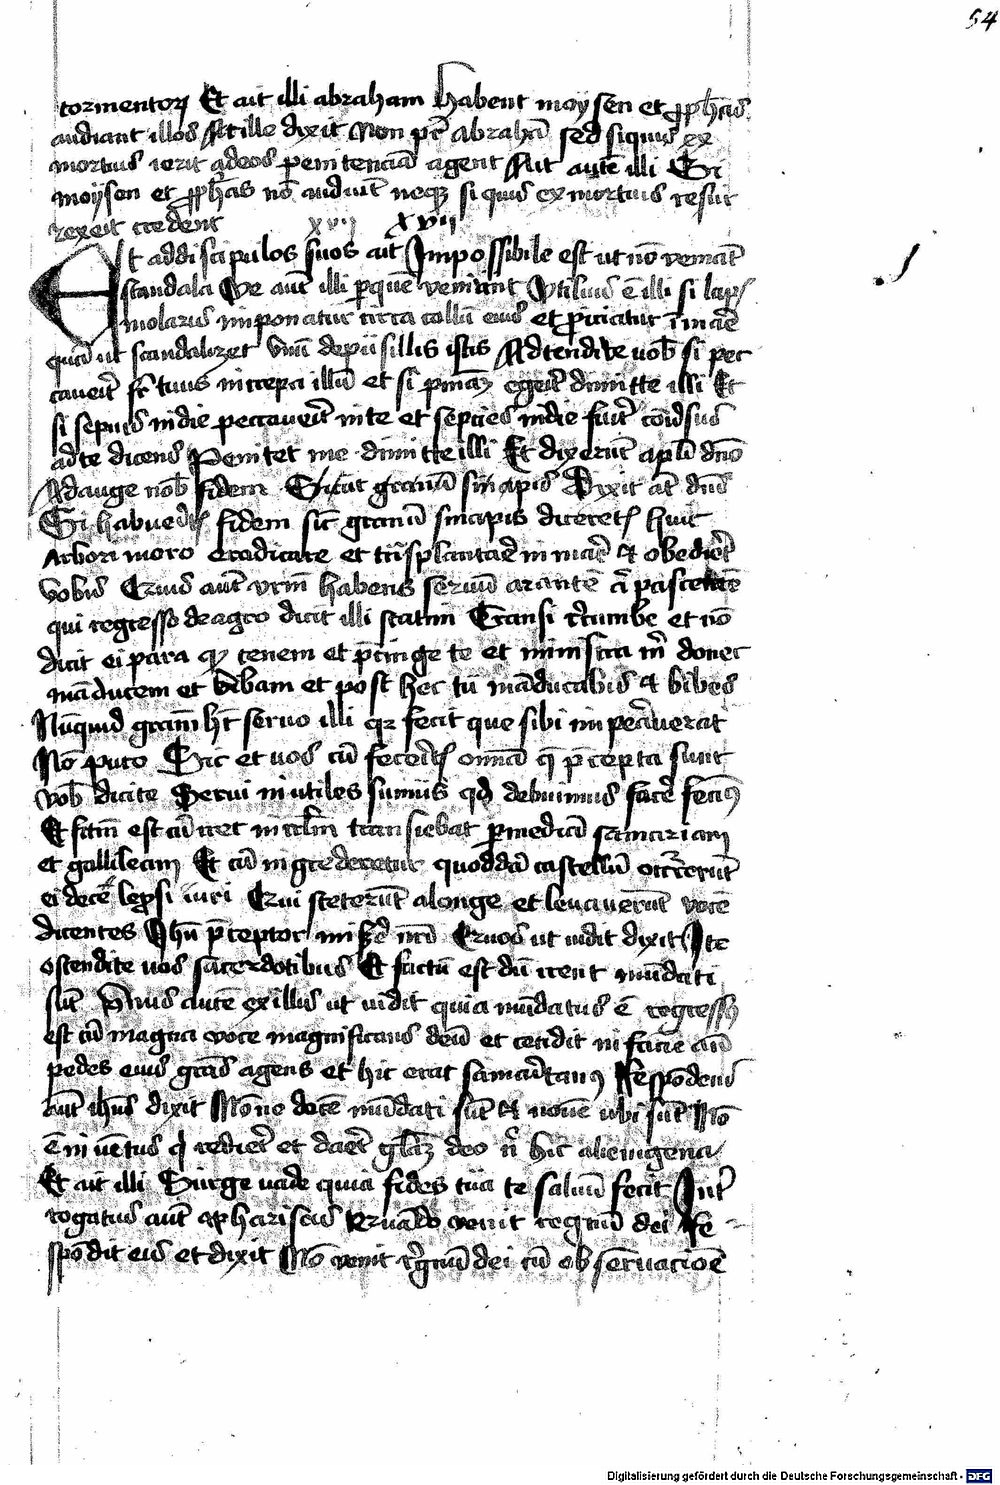 54
tormentorum Et ait illi abraham habent moysen et prophetas
audiant illos At ille dixit Non pater abraham sed si quis ex
mortuis ierit ad eos penitenciam agent Ait autem illi Si
moysen et prophetas non audiunt neque si quis ex mortuis resur
rexerit credent xvii xvii
Et ad discipulos suos ait Impossibile est ut non veniant
scandala Ve autem illi per quem veniunt Utilius est illi si lapis
molaris imponatur circa collum eius et proiciatur in mare
quam ut scandalizet unum de pusillis istis Adtendite vobis si pec
caverit frater tuus increpa illum et si penitenciam egerit dimitte illi Et
si sepcies in die peccaverit in te et sepcies in die fuerit conversus
ad te dicens Penitet me dimitte illi Et dixerunt apostoli domino
Adauge nobis fidem Sicut granum sinapis Dixit autem dominus
Si habueritis fidem sicut granum sinapis diceretis huic
Arbori moro eradicare et transplantare in mare et obediret
vobis Quis autem vestrum habens servum arantem aut pascentem
qui regresso de agro dicit illi statim Transi recumbe et non
dicit ei para quod cenem et precinge te et ministra michi donec
manducem et bibam et post hec tu manducabis et bibes
Nunquid graciam habet servo illi quia fecit que sibi imperaverat
Non puto Sic et vos cum feceritis omnia que precepta sunt
vobis dicite Servi inutiles sumus quod debuimus facere fecimus
Et factum est cum iret in iherusalem transiebat per mediam samariam
et galileam Et cum ingrederetur quoddam castellum occurrerunt
ei decem leprosi viri Qui steterunt a longe et levaverunt vocem
dicentes Ihesu preceptor miserere nostri Quos ut vidit dixit Ite
ostendite vos sacerdotibus Et factum est dum irent mundati
sunt Unus autem ex illis ut vidit quia mundatus est regressus
est cum magna voce magnificans deum et cecidit in faciem ante
pedes eius gracias agens et hic erat samaritanus Respondens
autem ihesus dixit Nonne decem mundati sunt et novem ubi sunt Non
est inventus qui rediret et daret gloriam deo nisi hic alienigena
Et ait illi Surge vade quia fides tua te salvum fecit Inter
rogatus autem a phariseis Quando venit regnum dei Re
spondit eis et dixit Non venit regnum dei cum observacione
Digitalisierung gefördert durch die Deutsche Forschungsgemeinschaft - DFG